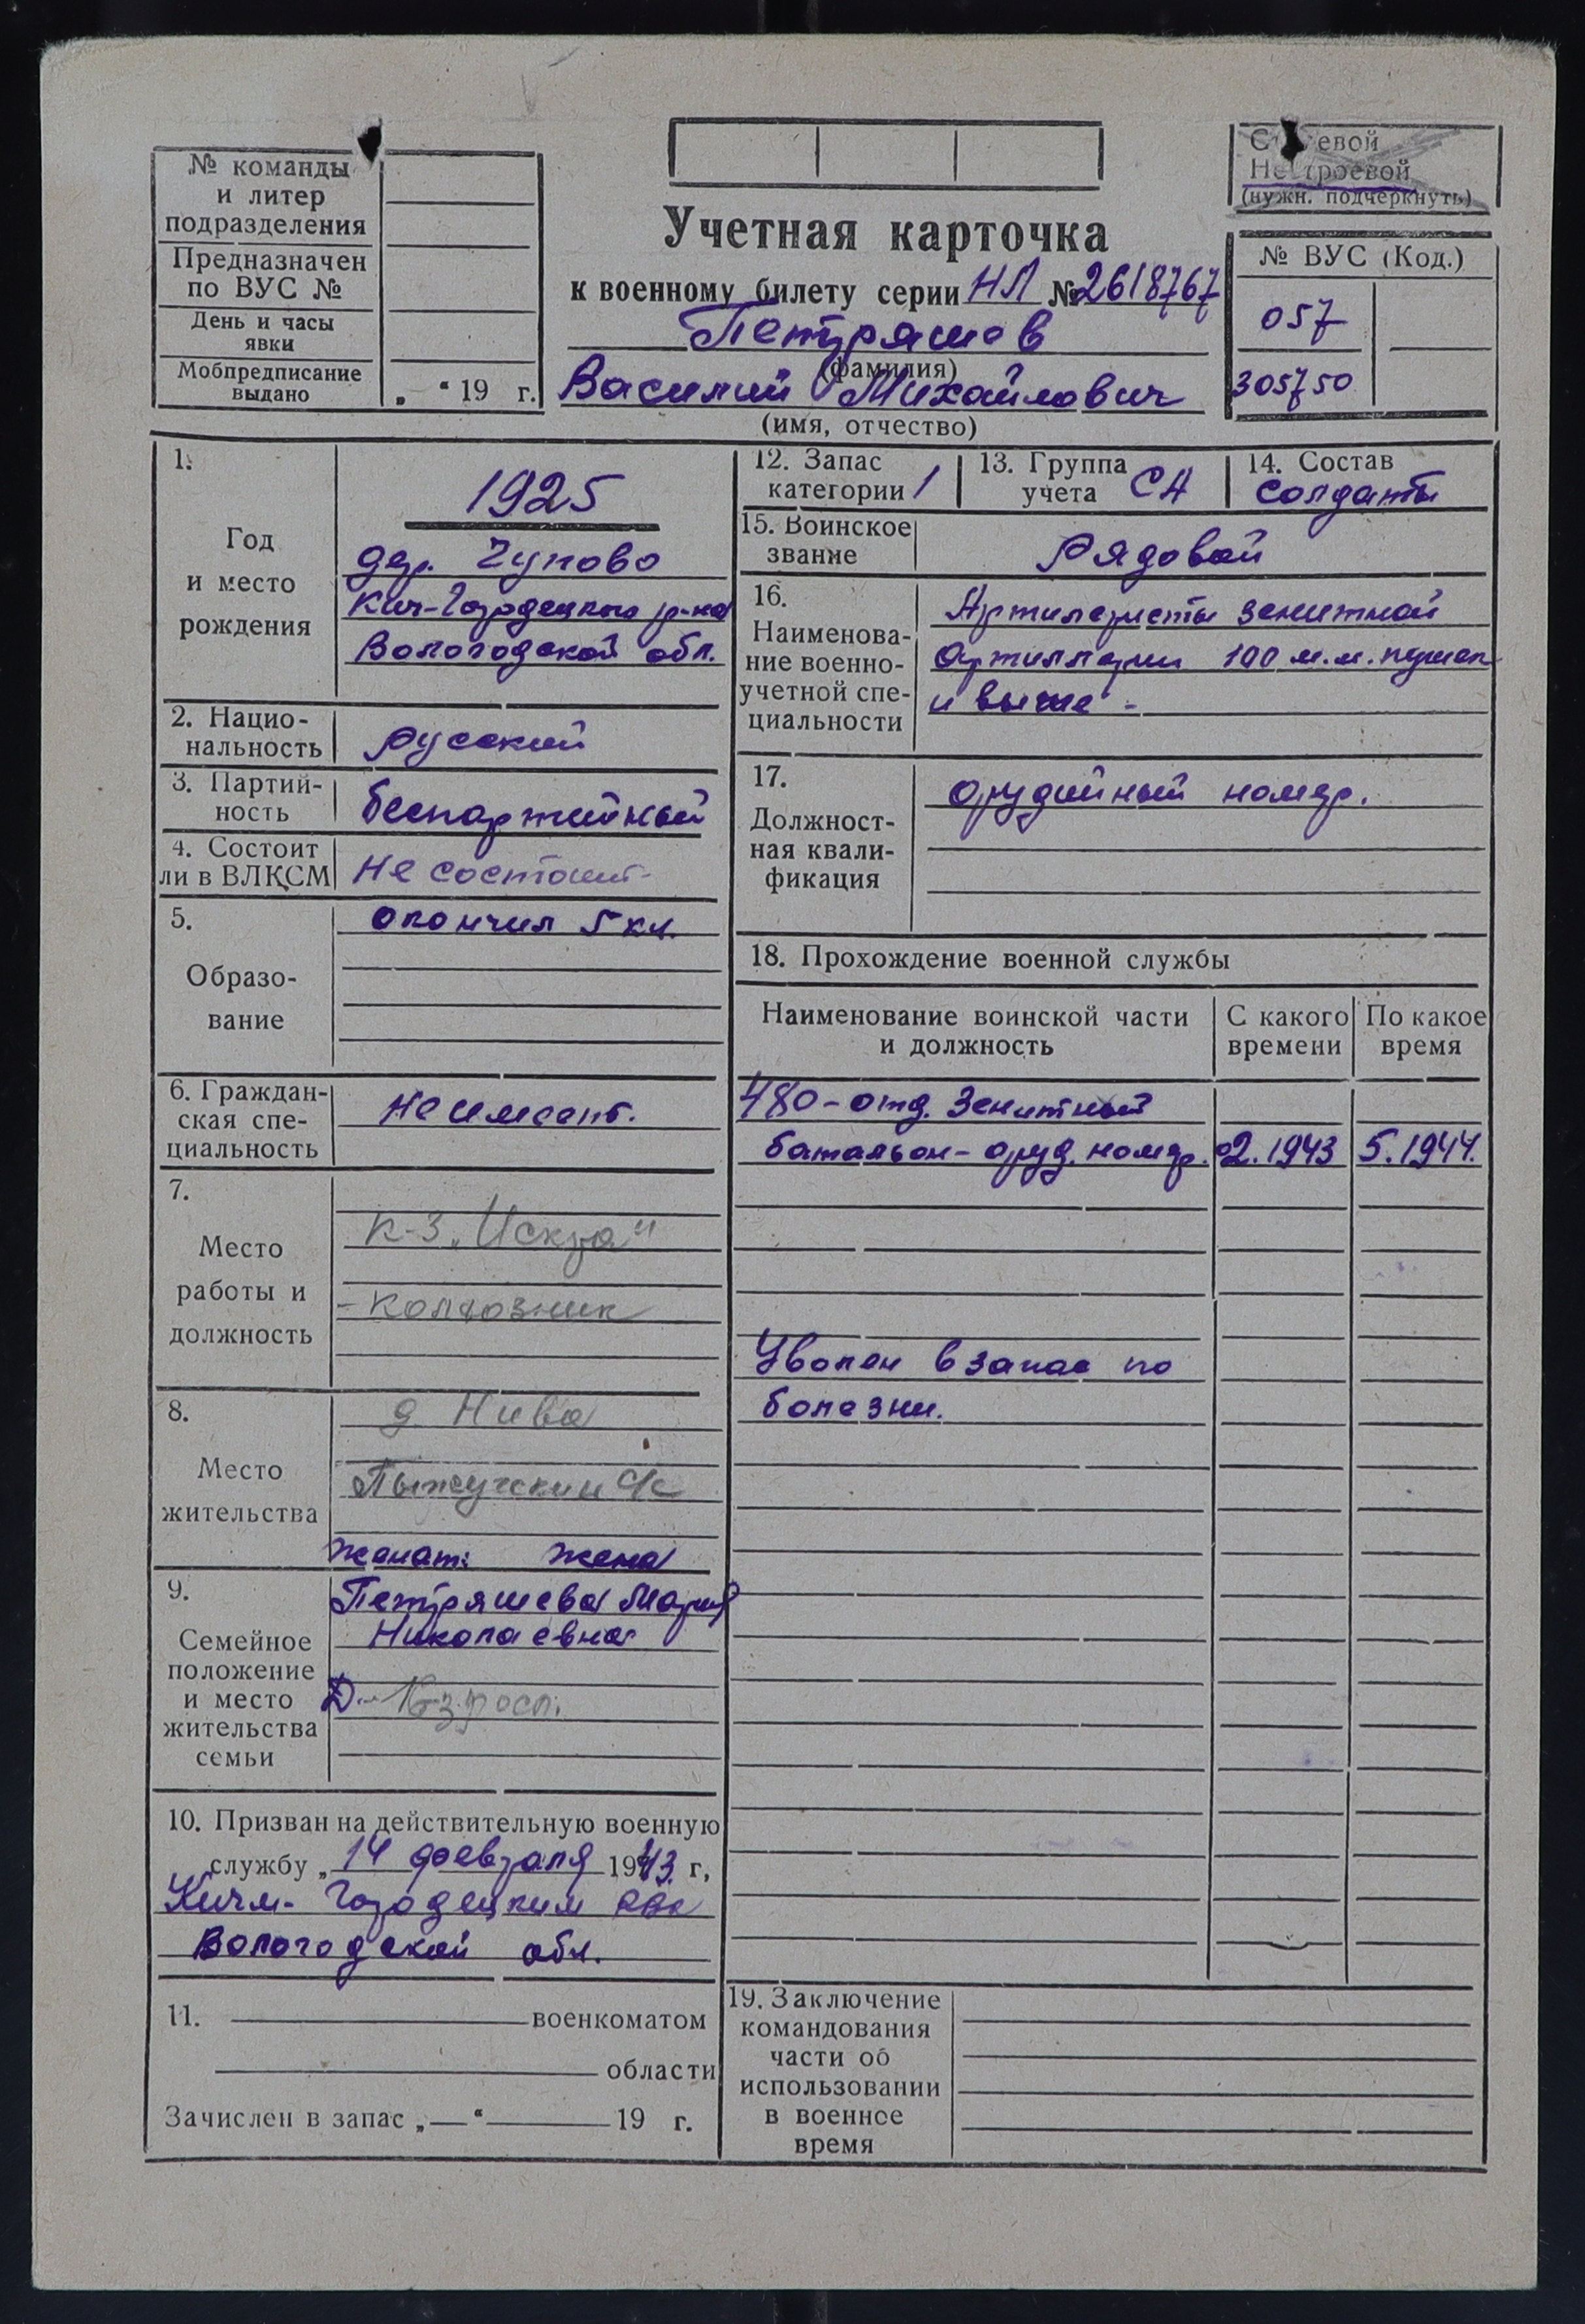 № команды
и литер
подразделения
Предназначен
по ВУС №
День и часы
явки
Мобпредписание
выдано
„ “ 19 г.
Учетная карточка
к военному билету серии НЛ № 2618767
Петряшов
(фамилия)
Василий Михайлович
(имя, отчество)
Строевой
Нестроевой
(нужн. подчеркнуть)
№ ВУС (Код.)
057
305750
1.
Год
и место
рождения
1925
дер. Чупово
Кич-Городецкого р-на
Вологодской обл.
2. Нацио-
нальность
русский
3. Партий-
ность
беспартийный
4. Состоит
ли в ВЛКСМ
не состоит
5.
Образо-
вание
окончил 5 кл.
6. Граждан-
ская спе-
циальность
не имеет.
7.
Место
работы и
должность
к-з „Искра“
- колхозник
8.
Место
жительства
д. Нива
Пыжугский с/с
женат: жена
9.
Семейное
положение
и место
жительства
семьи
Петряшева Мария
Николаевна
10. Призван на действительную военную
службу „ 14 февраля 1943 г,
Кичм-Городецким РВК
Вологодской обл.
11. военкоматом
области
Зачислен в запас „ “ 19 г.
12. Запас
категории 1
13. Группа
учета СА
14. Состав
солдаты
15. Воинское
звание
Рядовой
16.
Наименова-
ние военно-
учетной спе-
циальности
Артилеристы зенитной
артиллерии 100 м.м. пушек
и выше -
17.
Должност-
ная квали-
фикация
орудийный номер.
18. Прохождение военной службы
Наименование воинской части
и должность
С какого
времени
По какое
время
480-отд. Зенитный
батальон - оруд. номер. 02.1943 5.1944.
Уволен в запас по
болезни.
19. Заключение
командования
части об
использовании
в военное
время